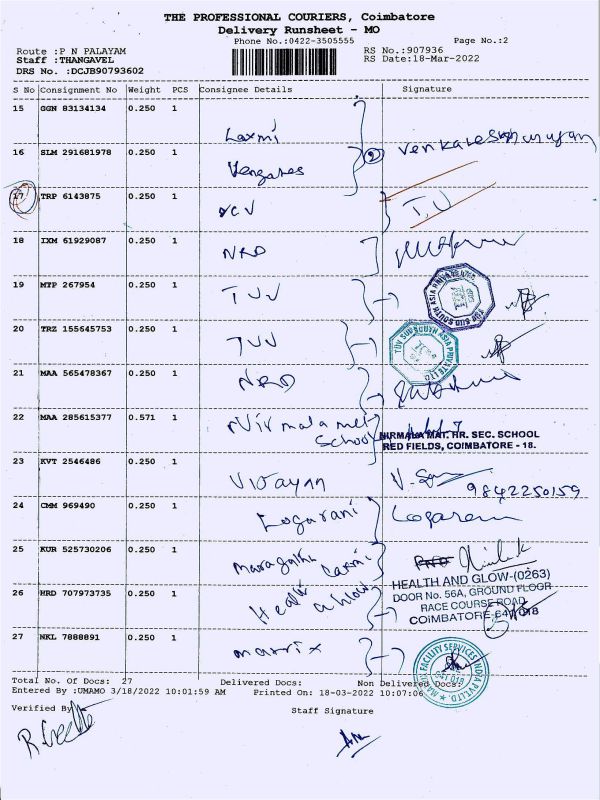 THE PROFESSIONAL COURIERS, Coimbatore
Delivery Runsheet - MO
Phone No.:0422-3505555
Page No.:2
Route :P N PALAYAM
RS No.:907936
Staff :THANGAVEL
RS Date:18-Mar-2022
DRS No. :DCJB90793602
S No Consignment No Weight PCS Consignee Details Signature
15 GGN 83134134 0.250 1
Laxmi
16 SLM 291681978 0.250 1
Vengates
17 TRP 6143875 0.250 1
18 IXM 61929087 0.250 1
NRD
19 MTP 267954 0.250 1
TUV
20 TRZ 155645753 0.250 1
TUV
TUV SUD SOUTH ASIA PRIVATE LTD
21 MAA 565478367 0.250 1
NRD
22 MAA 285615377 0.571 1
Nirmala met
School
NIRMALA MAT. HR. SEC. SCHOOL
RED FIELDS, COIMBATORE - 18.
23 KVT 2546486 0.250 1
Vijayan
9842250159
24 CMM 969490 0.250 1
Logarani
25 KUR 525730206 0.250 1
26 HRD 707973735 0.250 1
HEALTH AND GLOW-(0263)
DOOR No. 56A, GROUND FLOOR
RACE COURSE ROAD
COIMBATORE-641 018
27 NKL 7888891 0.250 1
Matrix
Total No. Of Docs: 27 Delivered Docs: Non Delivered Docs:
Entered By :UMAMO 3/18/2022 10:01:59 AM Printed On: 18-03-2022 10:07:06
Verified By
Staff Signature